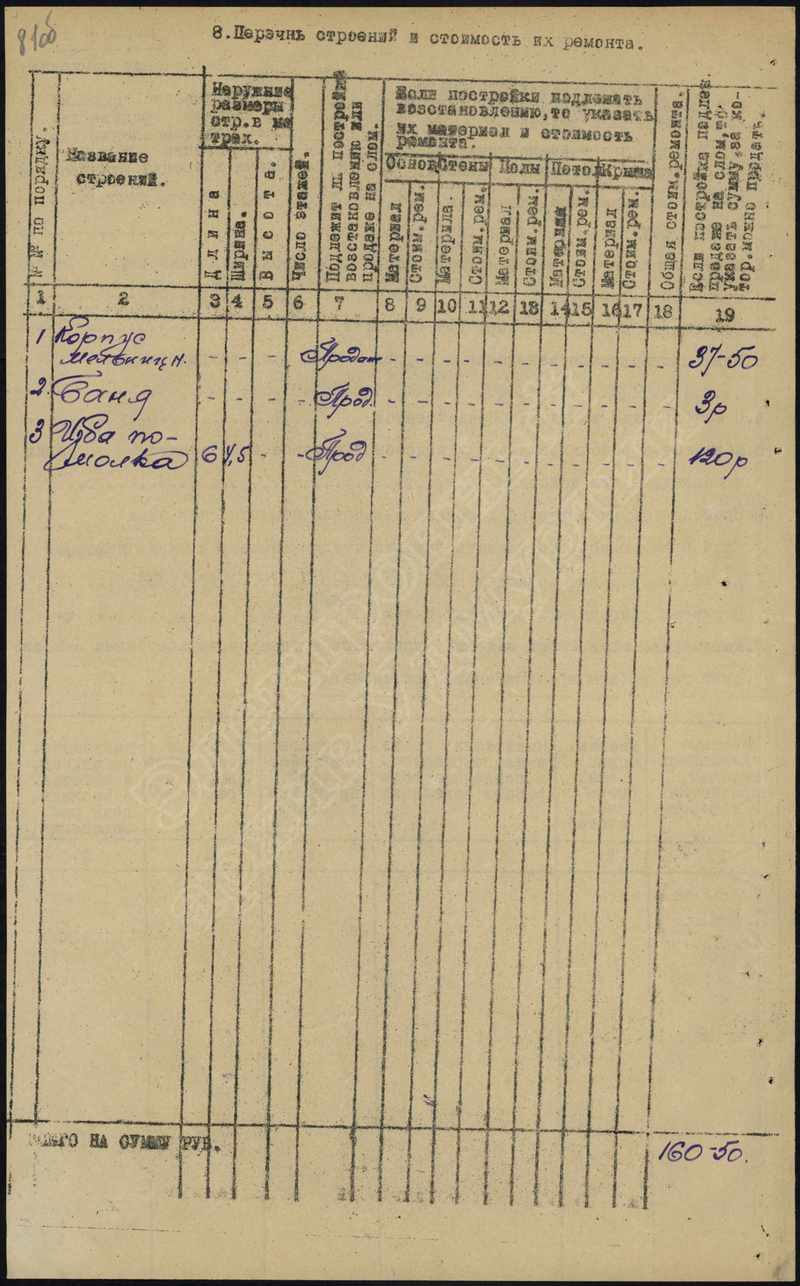 8.Перечнь строений и стоимость их ремонта.
№№ по порядку.
Название
строений.
Наружние
размеры
стр.в ме
трах.
Длина
Ширина.
Высота.
Число этажей.
Подлежит ли постройка
восстановлению или
продаже на слом.
Если постройки подлежать
восстановлению,то указать
их материал и стоимость
ремонта.
Основ Стены Полы Потол Крыша
Материал
Стоим.рем.
Материла.
Стоим.рем.
Материал
Стоим.рем.
Материал
Стоим.рем.
Материал
Стоим.рем.
Общая стоим.ремонта.
Если постройка падлеж.
продаже на слом,то,
указать сумму,за ко-
тор.можно прдать.
1 2 3 4 5 6 7 8 9 10 11 12 13 14 15 16 17 18 19
1 Корпус
- - - Продаж - - - - - - - - - - - 37-50
2. Баня - - - - Прод. - - - - - - - - - - - 3р
3 Изба по-
молка 6 4,5 - - Прод - - - - - - - - - - - 120р
ВСЕГО НА СУММУ РУБ. 160-50.